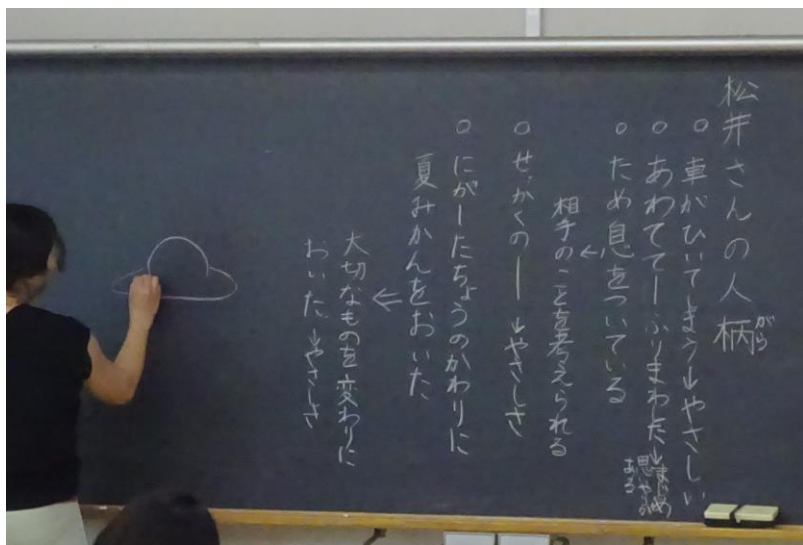 松井さんの人柄
がら
○ 車がひいてしまう→やさしい
○ あわててーふりまわた→まじめ
思やりがある
○ ため息をついている
←
相手のことを考えられる
○ せっかくのー→やさしさ
○ にがーたちょうのかわりに
夏みかんをおいた
⇐
大切なものを変わりに
おいた→やさしさ